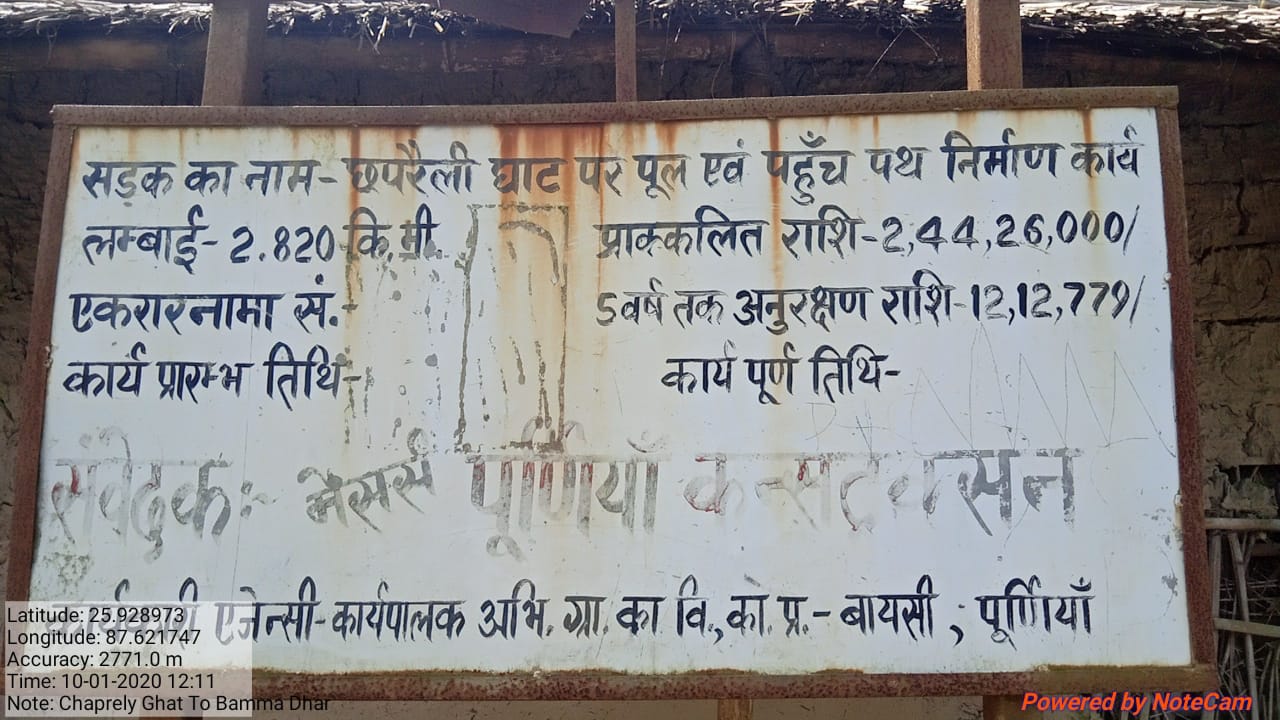 सड़क का नाम- छपरैली घाट पर पूल एवं पहुँच पथ निर्माण कार्य
लम्बाई- 2.820 कि.मी. प्राक्कलित राशि-2,44,26,000/
एकरारनामा सं.- 5वर्ष तक अनुरक्षण राशि-12,12,779/
कार्य प्रारम्भ तिथि- कार्य पूर्ण तिथि-
संवेदक:- मेसर्स पूर्णियाँ कन्सट्रक्सन
एजेन्सी-कार्यपालक अभि. ग्रा. का वि., का. प्र.- बायसी ; पूर्णियाँ
Latitude: 25.928973
Longitude: 87.621747
Accuracy: 2771.0 m
Time: 10-01-2020 12:11
Note: Chaprely Ghat To Bamma Dhar
Powered by NoteCam